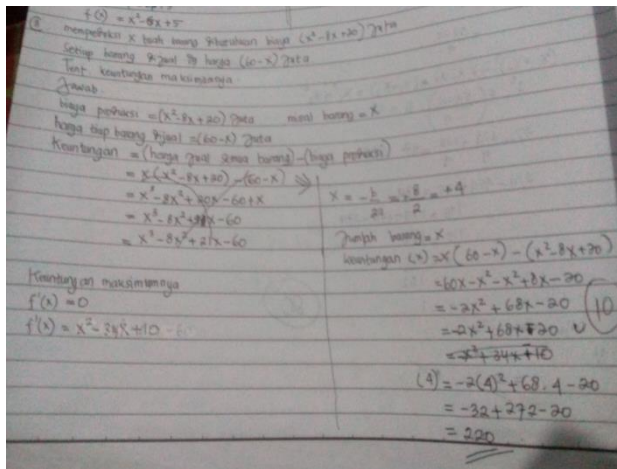 f(x) = x²-8x+5
③ memproduksi x buah barang diperlukan biaya (x²-8x+20) Juta
Setiap barang dijual dg harga (60-x) Juta
Tent. keuntungan maksimumnya.
Jawab
biaya produksi = (x²-8x+20) Juta misal barang = x
harga tiap barang dijual = (60-x) Juta
Keuntungan = (harga jual semua barang) - (biaya produksi)
= x(x²-8x+20) - (60-x)
= x³-8x²+20x-60+x
= x³-8x²+21x-60
= x³-8x²+21x-60
Keuntungan maksimumnya
f'(x) = 0
f'(x) = x²-34x+10
x = -b/2a = 8/2 = +4
Jumlah barang = x
keuntungan (x) = x(60-x) - (x²-8x+20)
= 60x-x²-x²+8x-20
= -2x²+68x-20
= -2x²+68x-20
= -x²+34x+10
10
(4) = -2(4)²+68.4-20
= -32+272-20
= 220